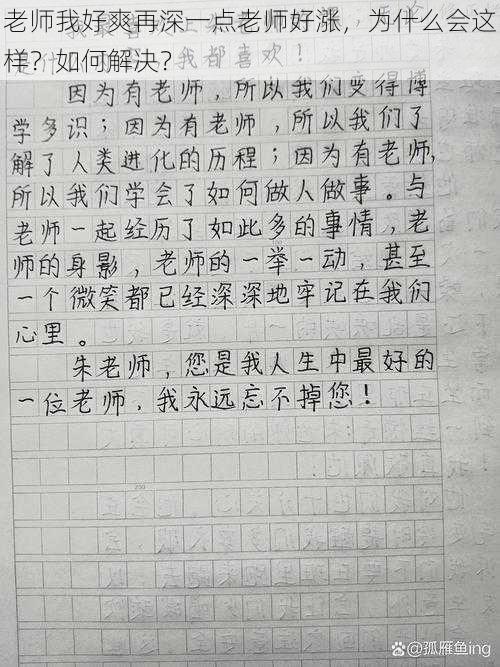 老师我好爽再深一点老师好涨，为什么会这
样？如何解决？
都喜欢！
因为有老师，所以我们变得博
学多识；因为有老师，所以我们了
解了人类进化的历程；因为有老师，
所以我们学会了如何做人做事。与
老师一起经历了如此多的事情，老
师的身影，老师的一举一动，甚至
一个微笑都已经深深地牢记在我们
心里。
朱老师，您是我人生中最好的
一位老师，我永远忘不掉您！
250
@孤雁鱼ing